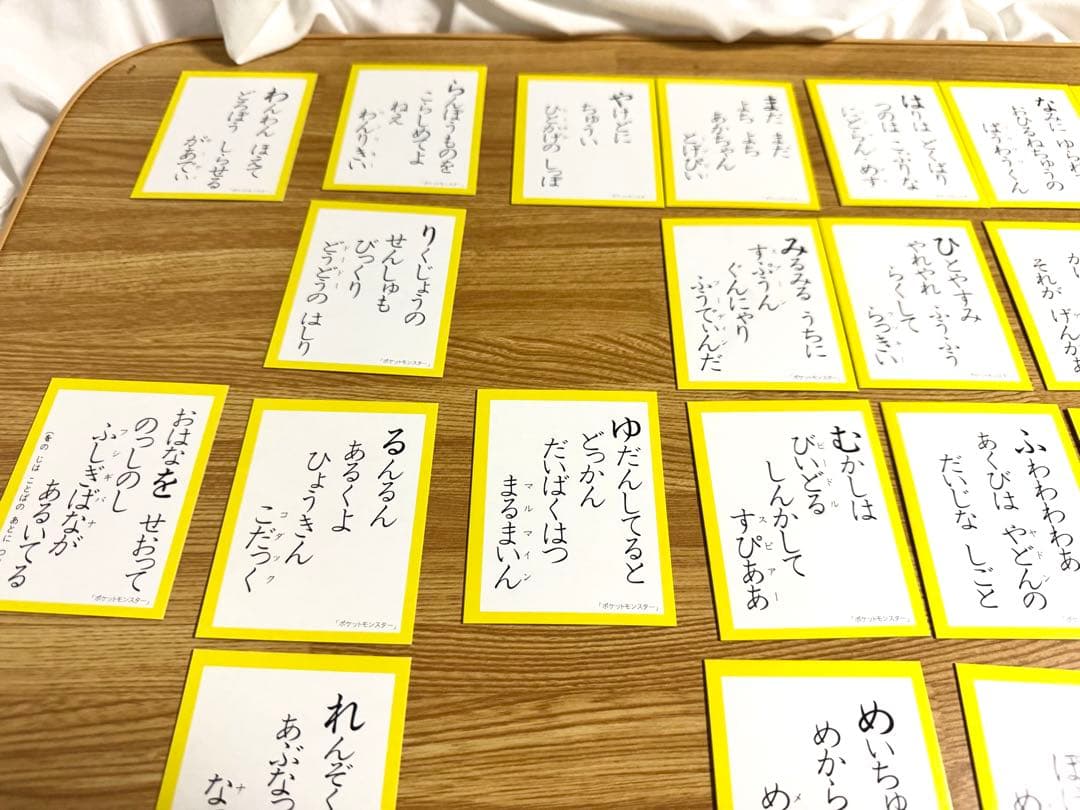 わんわん ほえて
どろぼう しらせる
があでい
「ポケットモンスター」
らんぼうものを
こらしめてよ
ねえ
わんりきい
「ポケットモンスター」
やけどに
ちゅうい
ひとかげの しっぽ
「ポケットモンスター」
まだ まだ
よち よち
あかちゃん
とげぴい
はりは どくばり
つのは こぶりな
にどらん めす
りくじょうの
せんしゅも
びっくり
どうどうの はしり
ドードー
「ポケットモンスター」
みるみる うちに
すぷうん
スプーン
ぐんにやり
ふうでぃんだ
フーディン
「ポケットモンスター」
ひとやすみ
やれやれ ふうふう
らくして
らっきい
ラッキー
「ポケットモンスター」
それが
おはなを せおって
のっしのし
ふしぎばなが
フシギバナ
あるいてる
(をの じは ことばの あとに つ
「ポケットモンスター」
るんるん
あるくよ
ひょうきん
こだっく
コダック
「ポケットモンスター」
ゆだんしてると
どっかん
だいばくはつ
まるまいん
マルマイン
「ポケットモンスター」
むかしは
びいどる
ビードル
しんかして
すぴああ
スピアー
「ポケットモンスター」
ふわわわわぁ
あくびは やどんの
ヤドン
だいじな しごと
「ポケットモン
れんぞく
あぶなっ
な
ナ
めいちゅ
めから
め
メ